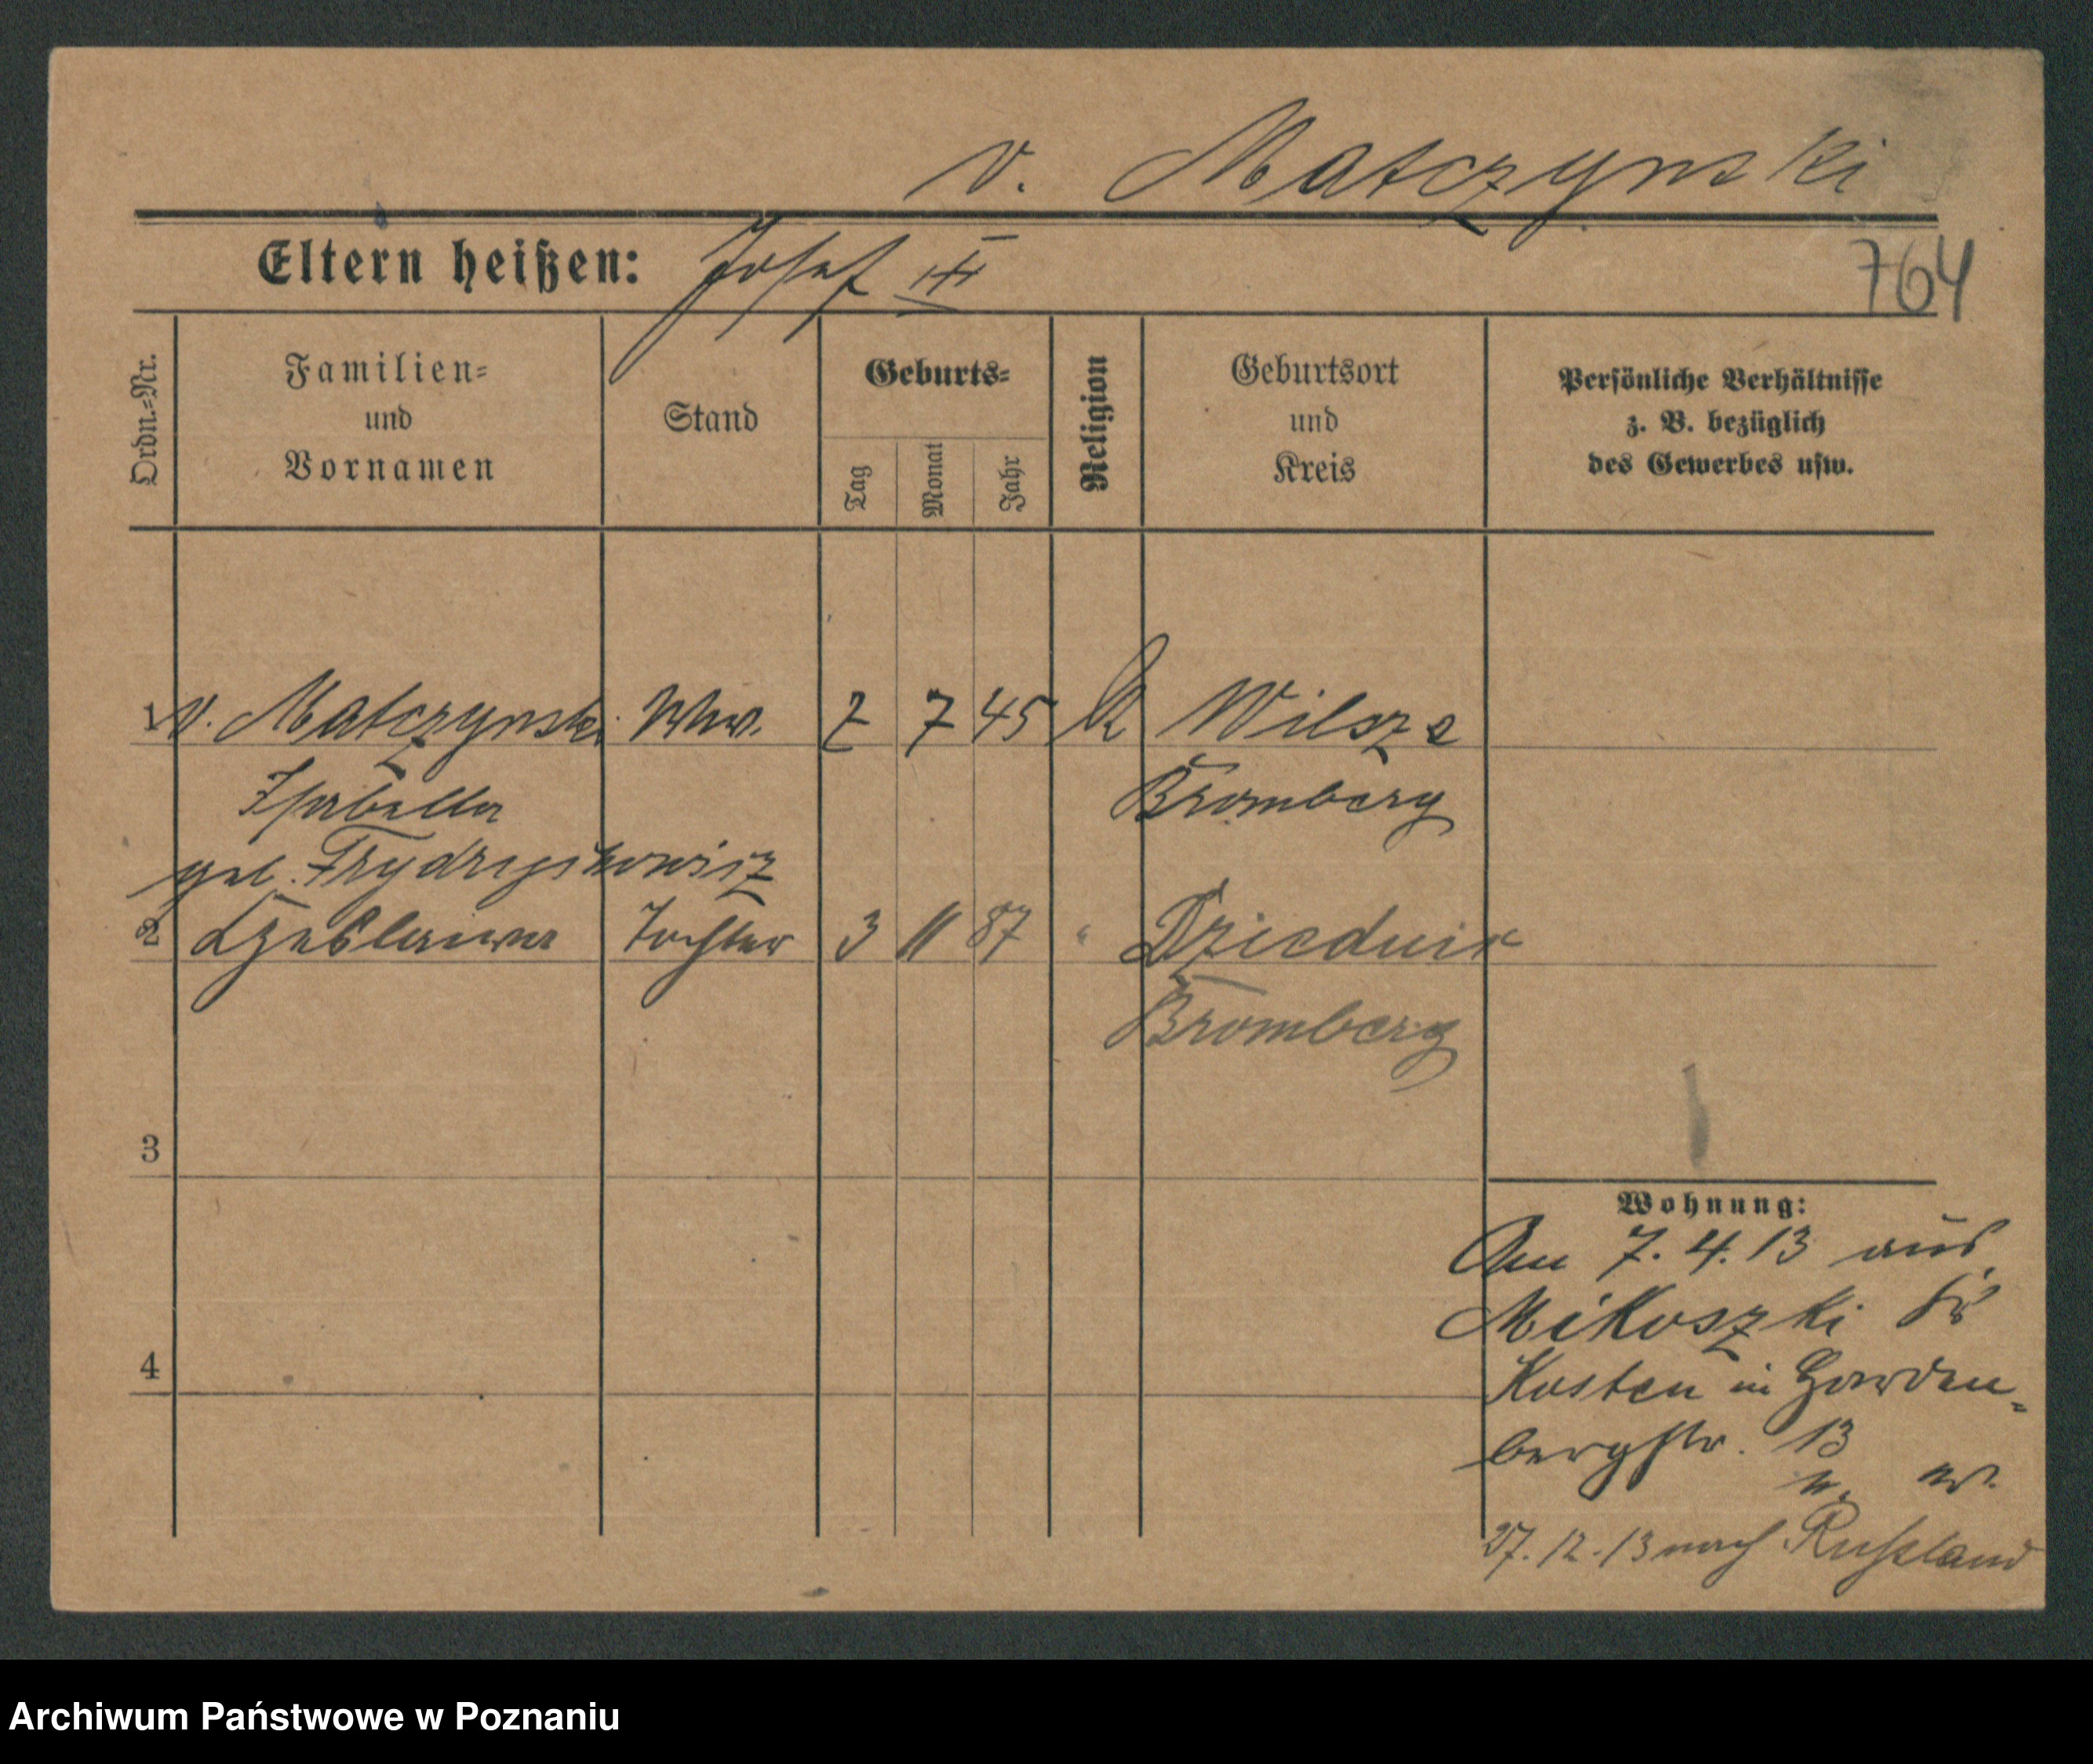 v. Matczynski
Eltern heißen: Josef III
764
Ordn.=Nr.
Familien=
und
Vornamen
Stand
Geburts=
Tag
Monat
Jahr
Religion
Geburtsort
und
Kreis
Persönliche Verhältnisse
z. B. bezüglich
des Gewerbes usw.
1 v. Matczynski Wwe. 2 7 45 k Wilsze
Isabella Bromberg
geb.
2 Tochter 3 11 87 "
Bromberg
3
Wohnung:
Am 7. 4. 13 aus
Mikoszki Kr
4
Kosten in Harden=
bergstr. 13
27. 12. 13 nach Russland
Archiwum Państwowe w Poznaniu